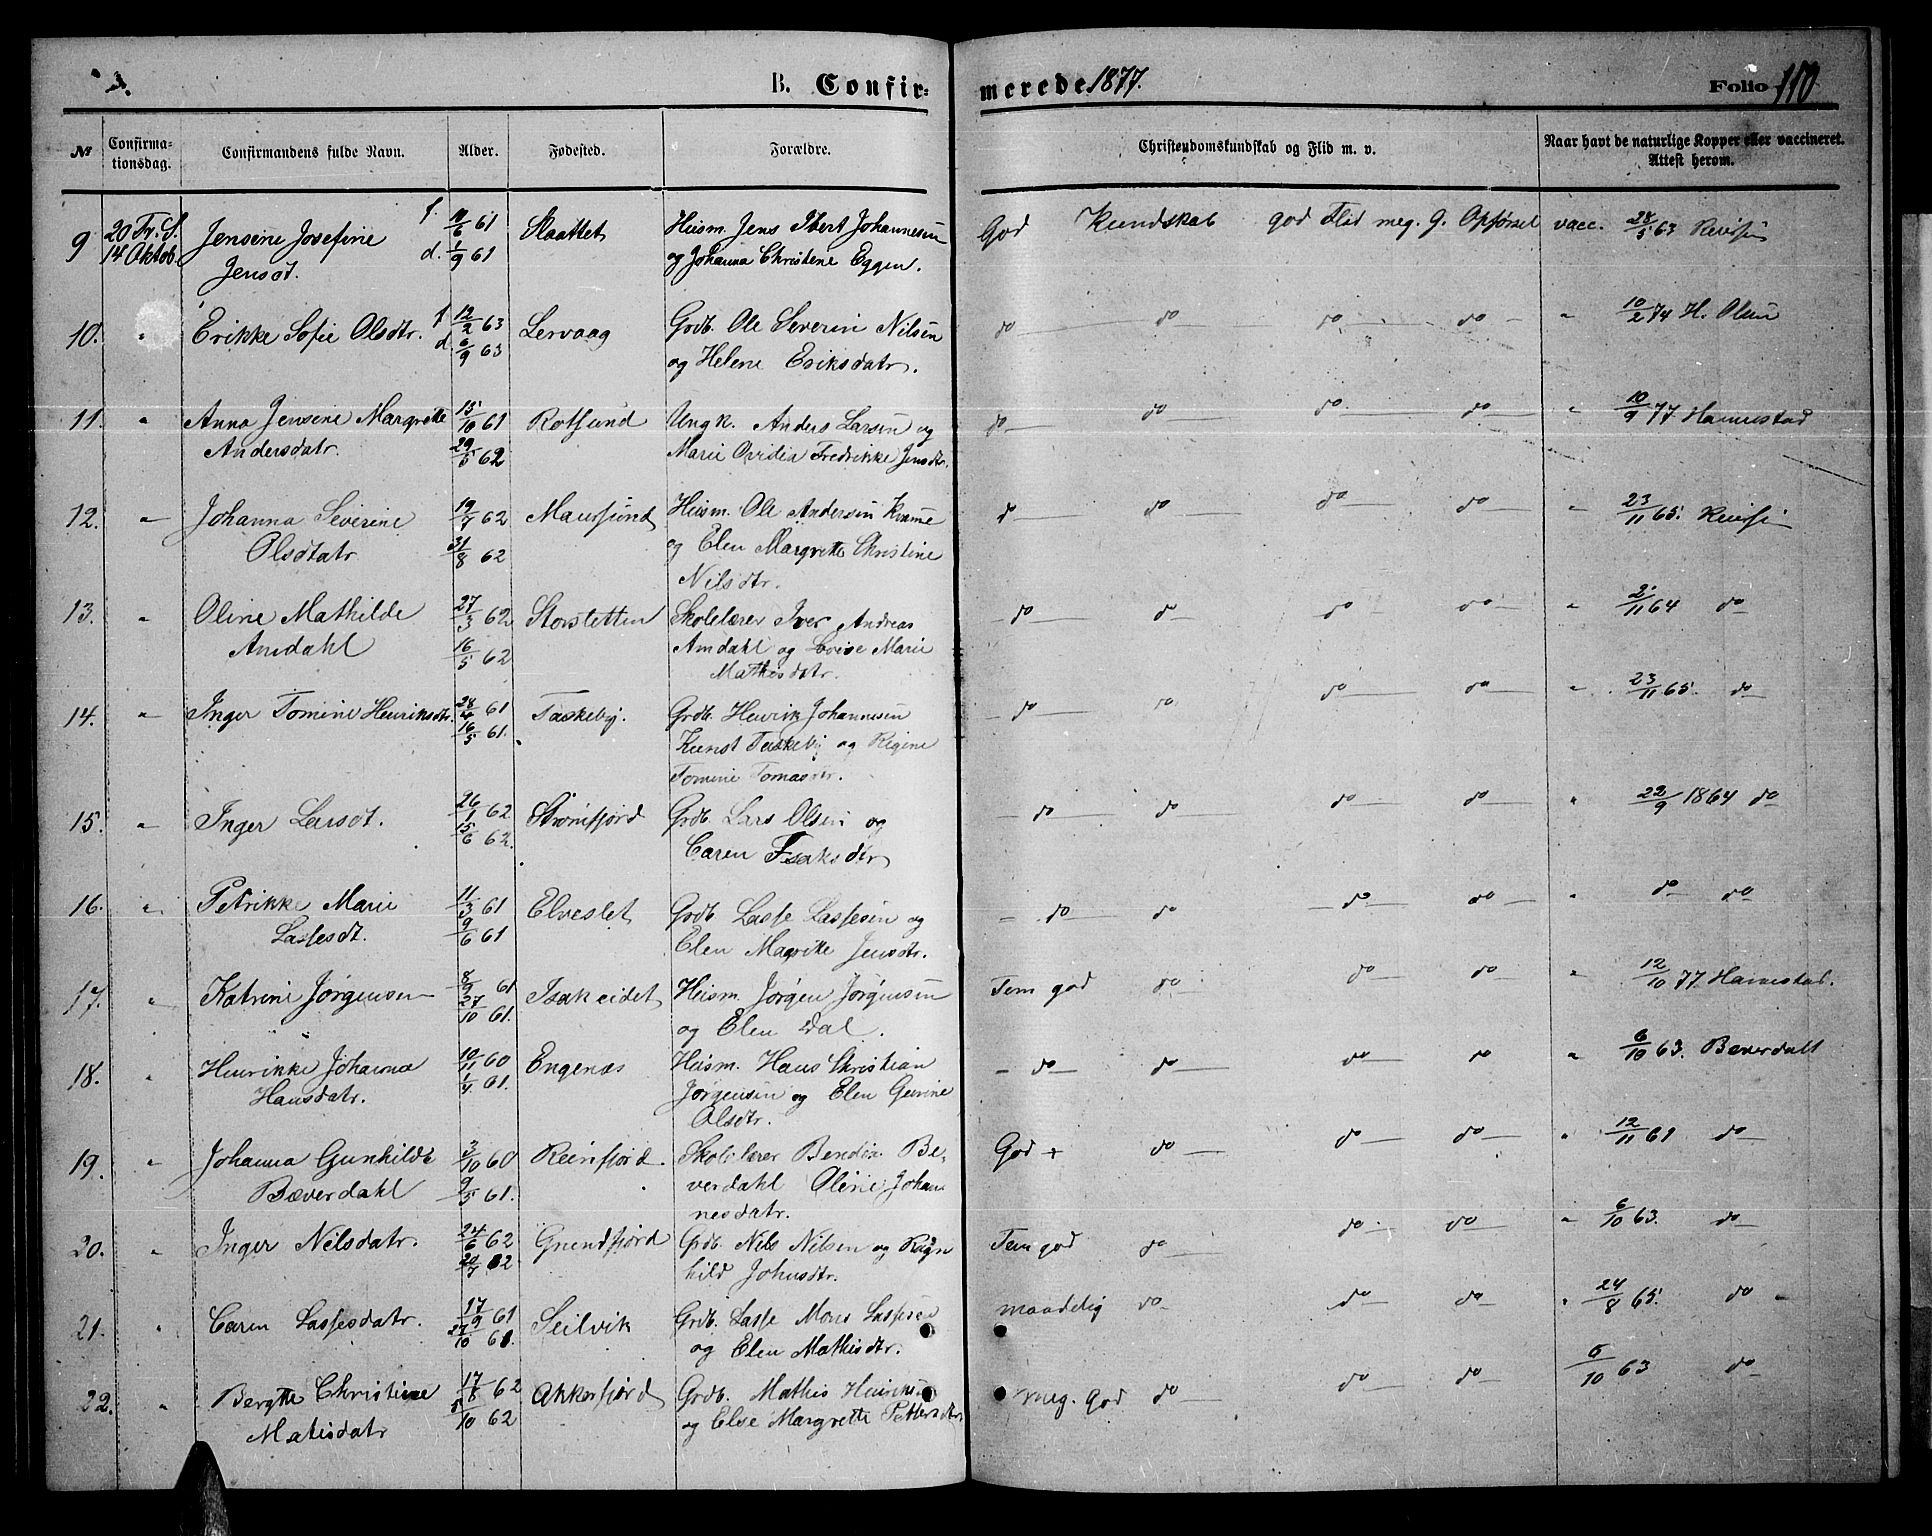 B. Confirmerede 1877. Folio 110
№ Confirmationsdag. Confirmandens fulde Navn. Alder. Fødested. Forældre. Christendomskundskab og Flid m. v. Naar havt de naturlige Kopper eller vaccineret. Attest herom.
9 20 Fr. S. 14 Oktob. Jensine Josefine Jensdt. f. 11/6 61 d. 1/9 61 Slaattet Husm. Jens Ibert Johannesen og Johanna Christene Eggen. God Kundskab god Flid meg. g. Opførsel vacc. 28/5 63
10. " Erikke Sofie Olsdtr. f 12/2 63 d 6/9 63 Lervaag Grdb. Ole Severin Nilsen og Helene Eriksdatr. do do do do " 10/2 74 H. Olsen
11. " Anna Jensine Margrette Andersdatr. 15/10 61 29/5 62 Rotsund Ungk. Anders Larsen og Marie Ovidia Fredrikke Jensdtr. do do do do " 10/9 77 Hannestad
12. " Johanna Severine Olsdtatr 19/7 62 31/8 62 Maursund Husm. Ole Andersen Kvæne og Elen Margrette Christine Nilsdtr. d do do do " 23/11 65.
13. " Oline Mathilde Amdahl 27/3 62 16/5 62 Storsletten Skolelærer Iver Andreas Amdahl og Lovise Marie Mathisdatr. do do do do " 2/11 64 do
14. " Inger Tomine Henriksdtr. 28/4 61 16/5 61. Taskeby. Grdb. Henrik Johannesen Kunst Taskeby og Regine Tomine Tomasdtr. do do do do " 23/11 65. do
15. " Inger Larsdt. 26/1 62 15/6 62. Strømfjord Grdb. Lars Olsen og Caren Isaksdtr do do do do " 22/9 1864 do
16. " Petrikke Marie Lassesdt. 11/3 61 9/6 61 Elveslet Grdb. Lasse Lassesen og Elen Magrete Jensdtr. do do do do " do do
17. " Katrine Jørgensen 8/9 61 27/10 61. Isakeidet Husm. Jørgen Jørgensen og Elen Dal. Tem god do do do " 12/10 77 Hannestad.
18. " Henrikke Johanna Hansdatr. 10/11 60 1/4 61. Engenæs Husm. Hans Christian Jørgensen og Elen Gurine Olsdtr. do do do do " 6/10 63. Beverdalt
19. " Johanna Gunhilde Bæverdahl 3/10 60 9/5 61. Reinfjord. Skolelærer Bendix Beverdahl Oline Johannesdatr. God + do do do " 12/11 61 do
20. " Inger Nilsdatr. 24/6 62 20/7 62 Grundfjord Grdb. Nils Nilsen og Ragnhild Johnsdtr. Tem god do do do " 6/10 63. do
21. " Caren Lassesdatr. 17/9 61 27/10 61. Seilvik Grdb. Lasse Mons Lassesen og Elen Mathisdtr. maadelig do do do " 24/8 65. do
22. " Bergtte Christine Matisdatr 17/8 62 5/10 62 Akkerfjord Grdb. Mathis Henriksen og Else Margrette Pettersdtr meg. god do do do 6/10 63 do